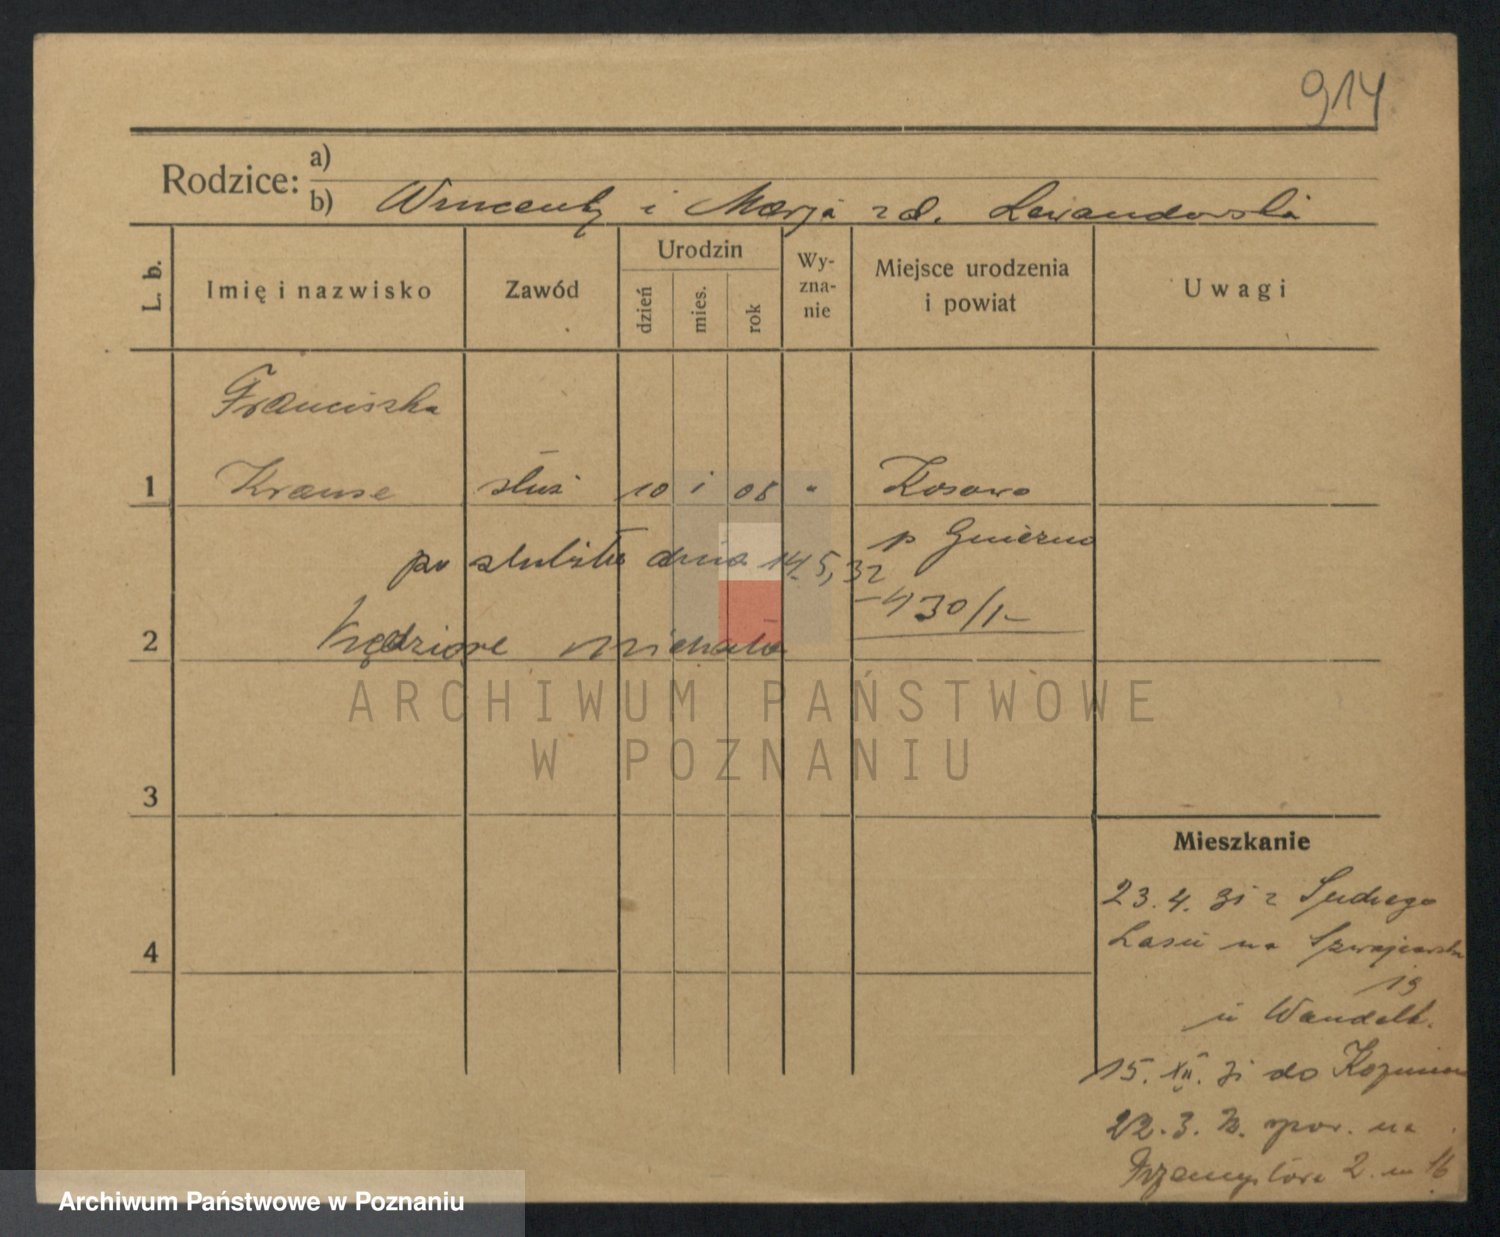 914
Rodzice:
a)
b) Wincenty i Marja z d. Lewandowska
L. b.
Imię i nazwisko
Zawód
Urodzin
dzień
mies.
rok
Wy-
zna-
nie
Miejsce urodzenia
i powiat
Uwagi
Franciszka
1 Krause służ 10 i 08 " Kosowo
p Gniezno
po ślubiła dnia 14.5,32
-430/1-
2 Kędziore Michała
ARCHIWUM PAŃSTWOWE
W POZNANIU
3
Mieszkanie
4
23.4. 31 z Suchego
Lasu na Szwajcarska
19
u Wandelt.
15. XII. 31 do
22.3. 32. spor. na
Przemysłowa 2. m 16
Archiwum Państwowe w Poznaniu